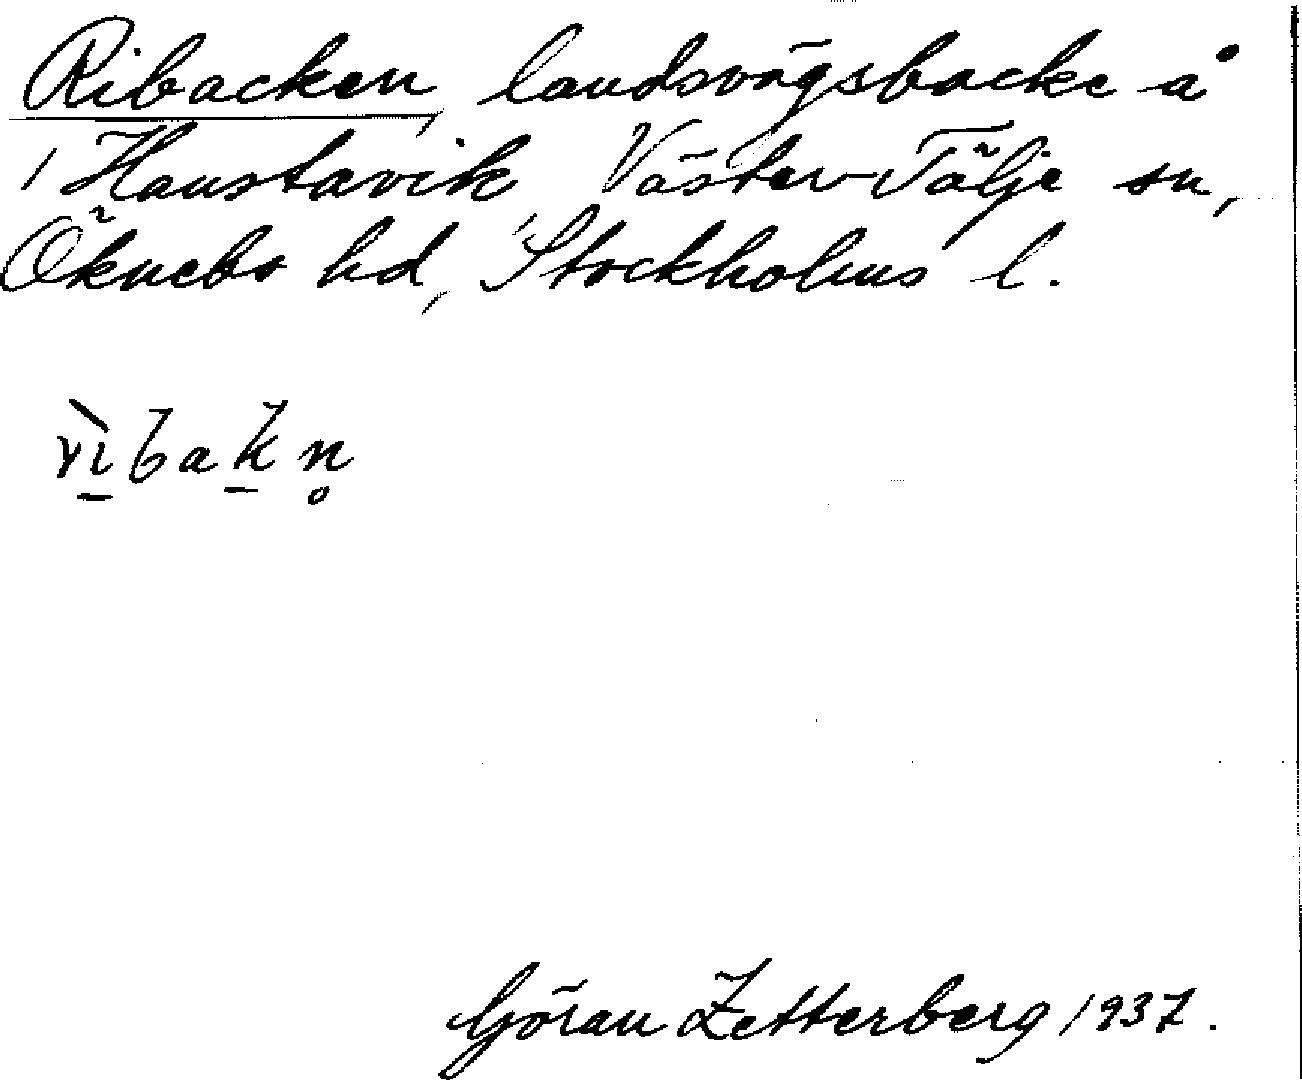 Ribacken, landsvägsbacke å
Haustavik, Väster-Tälje sn,
Öknebo hd, Stockholms l.
Göran Zetterberg 1937.